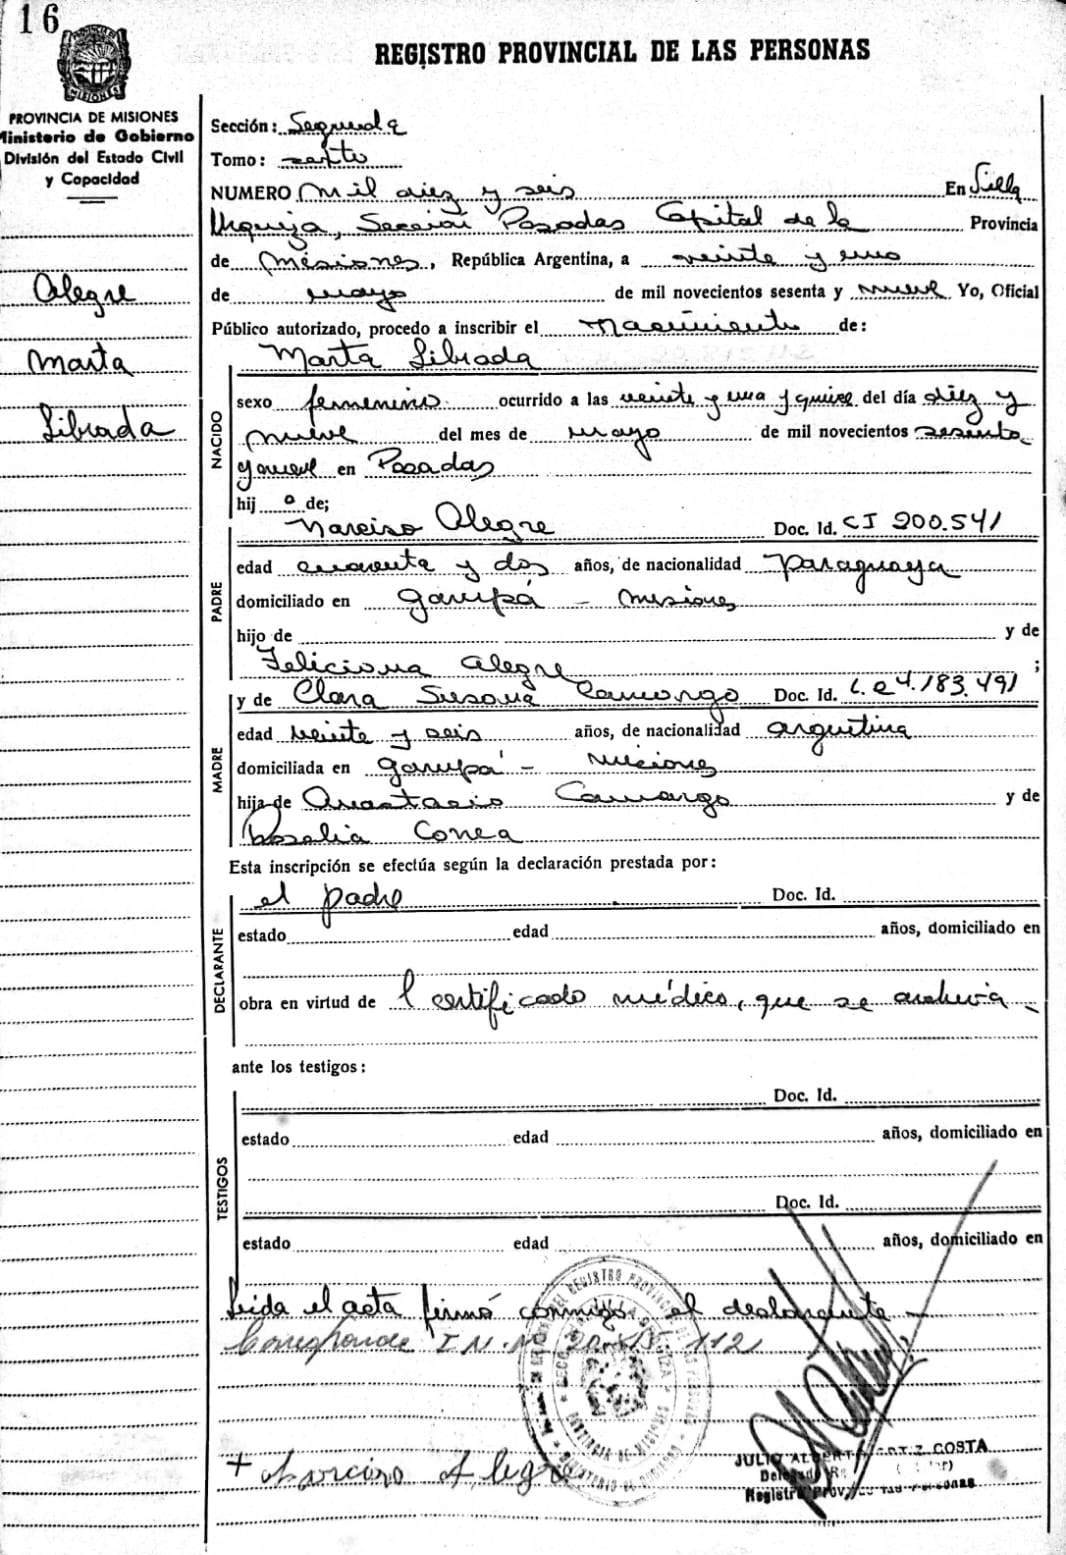 16
REGISTRO PROVINCIAL DE LAS PERSONAS
MISIONES
PROVINCIA DE MISIONES
Ministerio de Gobierno
División del Estado Civil
y Capacidad
Alegre
Marta
Librada
Sección: Segunda
Tomo: sexto
NUMERO mil diez y seis En Villa
Urquiza, Sección Posadas Capital de la Provincia
de Misiones, República Argentina, a veinte y uno
de mayo de mil novecientos sesenta y nueve Yo, Oficial
Público autorizado, procedo a inscribir el nacimiento de:
Marta Librada
NACIDO
sexo femenino ocurrido a las veinte y una y quince del día diez y
nueve del mes de mayo de mil novecientos sesenta
y nueve en Posadas
hij a de;
Narciso Alegre Doc. Id. CI 200.541
PADRE
edad cuarenta y dos años, de nacionalidad paraguaya
domiciliado en Garupá - Misiones
hijo de y de
Feliciana Alegre ;
y de Clara Susana Camargo Doc. Id. L.C 4.183.491
MADRE
edad veinte y seis años, de nacionalidad argentina
domiciliada en Garupá - Misiones
hija de Anastacio Camargo y de
Rosalia Correa
Esta inscripción se efectúa según la declaración prestada por:
DECLARANTE
el padre Doc. Id.
estado edad años, domiciliado en
obra en virtud de l certificado médico, que se archiva -
ante los testigos:
TESTIGOS
Doc. Id.
estado edad años, domiciliado en
Doc. Id.
estado edad años, domiciliado en
Leida el acta firmó conmigo el declarante -
Corresponde I N. N 112
+ Narciso Alegre
JULIO COSTA
Delegado
Registro Prov. de las Personas